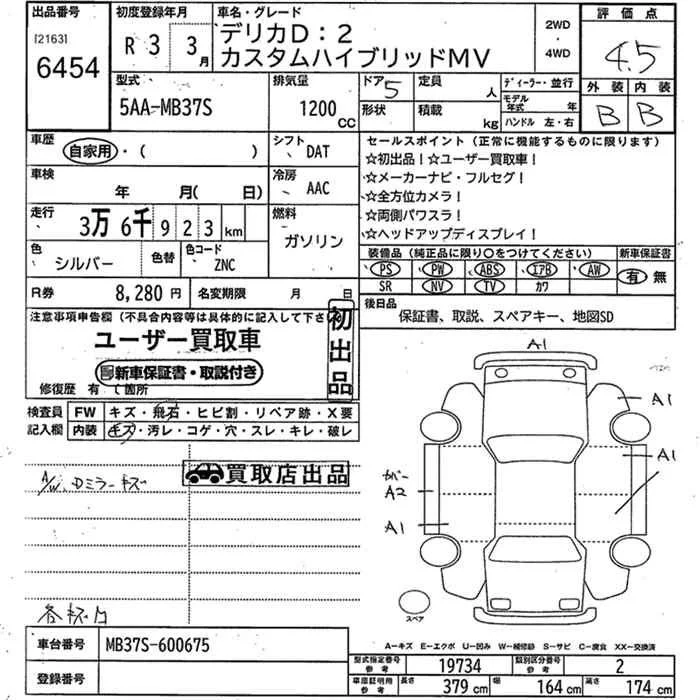 出品番号
[2163]
6454
初度登録年月
R 3 3月
車名・グレード
デリカD：2
カスタムハイブリッドMV
2WD
・
4WD
評価点
4.5
外装 内装
B B
型式
5AA-MB37S
排気量
1200
CC
ドア 5
形状
定員 人
積載 kg
ディーラー・並行
モデル年式 年
ハンドル 左・右
車歴
自家用・( )
シフト
DAT
車検
年 月( 日)
冷房
AAC
走行
3万 6千 9 2 3 km
燃料
ガソリン
色
シルバー
色替
色コード
ZNC
R券 8,280 円
名変期限 月 日
セールスポイント（正常に機能するものに限ります）
☆初出品！☆ユーザー買取車！
☆メーカーナビ・フルセグ！
☆全方位カメラ！
☆両側パワスラ！
☆ヘッドアップディスプレイ！
装備品（純正品に限り○をつけてください）
新車保証書
PS PW ABS エアB AW
有 無
SR NV TV カワ
後日品
保証書、取説、スペアキー、地図SD
注意事項申告欄（不具合内容等は具体的に記入して下さ
ユーザー買取車
新車保証書・取説付き
初出品
修復歴 有 て箇所
検査員
記入欄
FW キズ・飛石・ヒビ割・リペア跡・X要
内装 キズ・汚レ・コゲ・穴・スレ・キレ・破レ
買取店出品
A/W、Dミラーキズ
A1
A1
A1
カバー
A2
A1
スペア
A=キズ E=エクボ U=凹み W=補修跡 S=サビ C=腐食 XX=交換済
車台番号 MB37S-600675
登録番号
型式指定番号
参考
19734
類別区分番号
参考
2
車庫証明用
参考
長さ 379 cm
幅 164 cm
高さ 174 cm